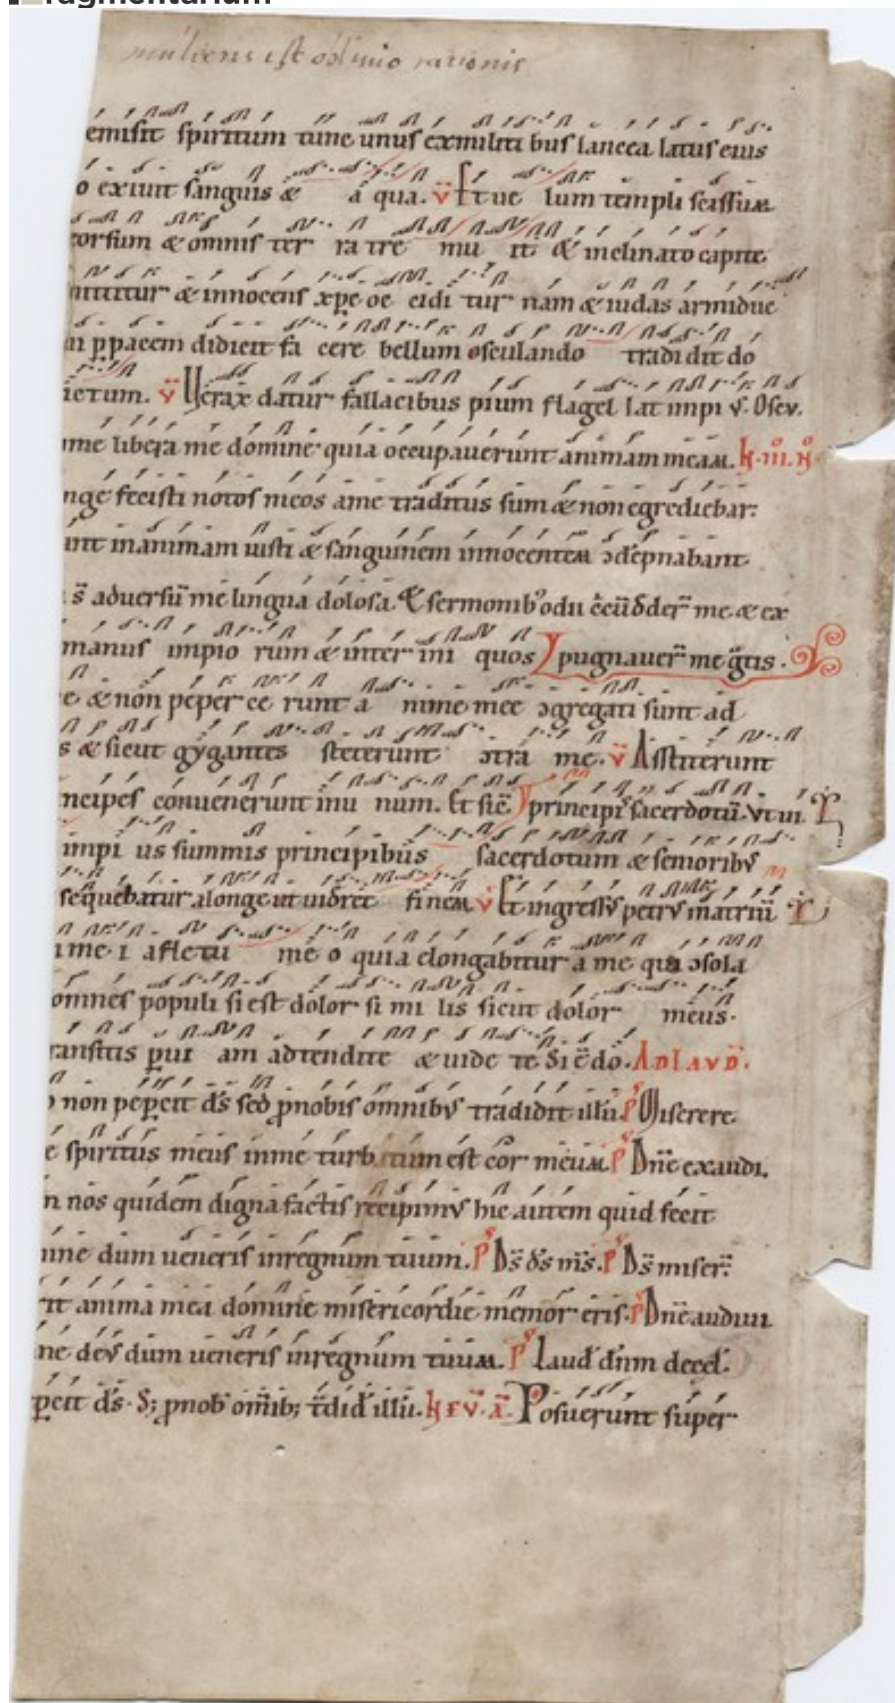 ragmentarium
mulieris est
emisit spiritum tunc unus exmiliti bus lancea latus eius
o exivit sanguis & a qua. v̈ Et ue lum templi scissum
eorsum & omnis ter ra tre mu it & inclinato capite
mittitur & innocens xpc oc cidi tur nam & iudas armiduc
p̄pacem didicit fa cere bellum osculando tradidit do
v̈ Uerax datur fallacibus pium flagel lat impi v̄. Oscv.
me libera me domine quia occupaverunt animam meam. k. III. N
nge fecisti notos meos ame traditus sum & non egrediebar:
unt inanimam iusti & sanguinem innocentem ɔdēpnabant
s̄ aduersū me lingua dolosa. & sermonib' odii me & ex
manus impio rum & inter ini quos pugnauer̄ me g̃tis.
e & non peper ce runt a nime mee ɔgregati sunt ad
s & sicut gygantes steterunt ɔtra me. v̈ Asstiterunt
ncipes convenerunt inu num. Et sic̄ principi sacerdotū. vt ui
impi us summis principibus sacerdotum & senioribv
sequebatur alonge ut uid̄ret finem v̈ Et ingressv petrv inatriū
me i a fletu me o quia elongabitur a me qui ɔsola
omnes populi si est dolor si mi lis sicut dolor meus.
ransitis p̱ui am adtendite & uide te S̄i ē dō. AD LAVD̄.
non pep̱cit ds̄ sed p̱nobis omnibv tradidit illū. P̄ Miserere
spiritus meus inme turbatum est cor meum P̄ Dn̄e exaudi.
n nos quidem digna factis recipimv hic autem quid fecit
mne dum ueneris inregnum tuum. P̄ Ds̄ ds̄ ms̄. P̄ Ds̄ miser̄:
rit anima mea domine misericordie memor eris. P̄ Dn̄e audiui
ne dev dum ueneris inregnum tuum. P̄ Laud' dn̄m decel'.
p̱cit ds̄. S; p̱nob' om̄ib; t̄did' illū. k EV. A. Posuerunt super